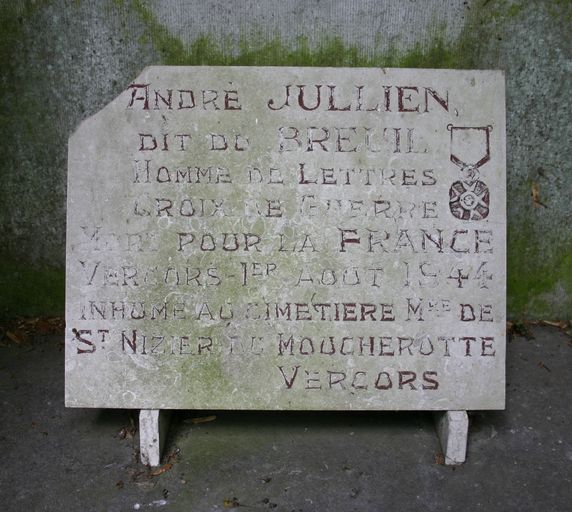 ANDRÉ JULLIEN,
DIT DU BREUIL
HOMME DE LETTRES
CROIX DE GUERRE
MORT POUR LA FRANCE
VERCORS-1ER AOUT 1944
INHUMÉ AU CIMETIÈRE MRE DE
ST NIZIER DU MOUCHEROTTE
VERCORS